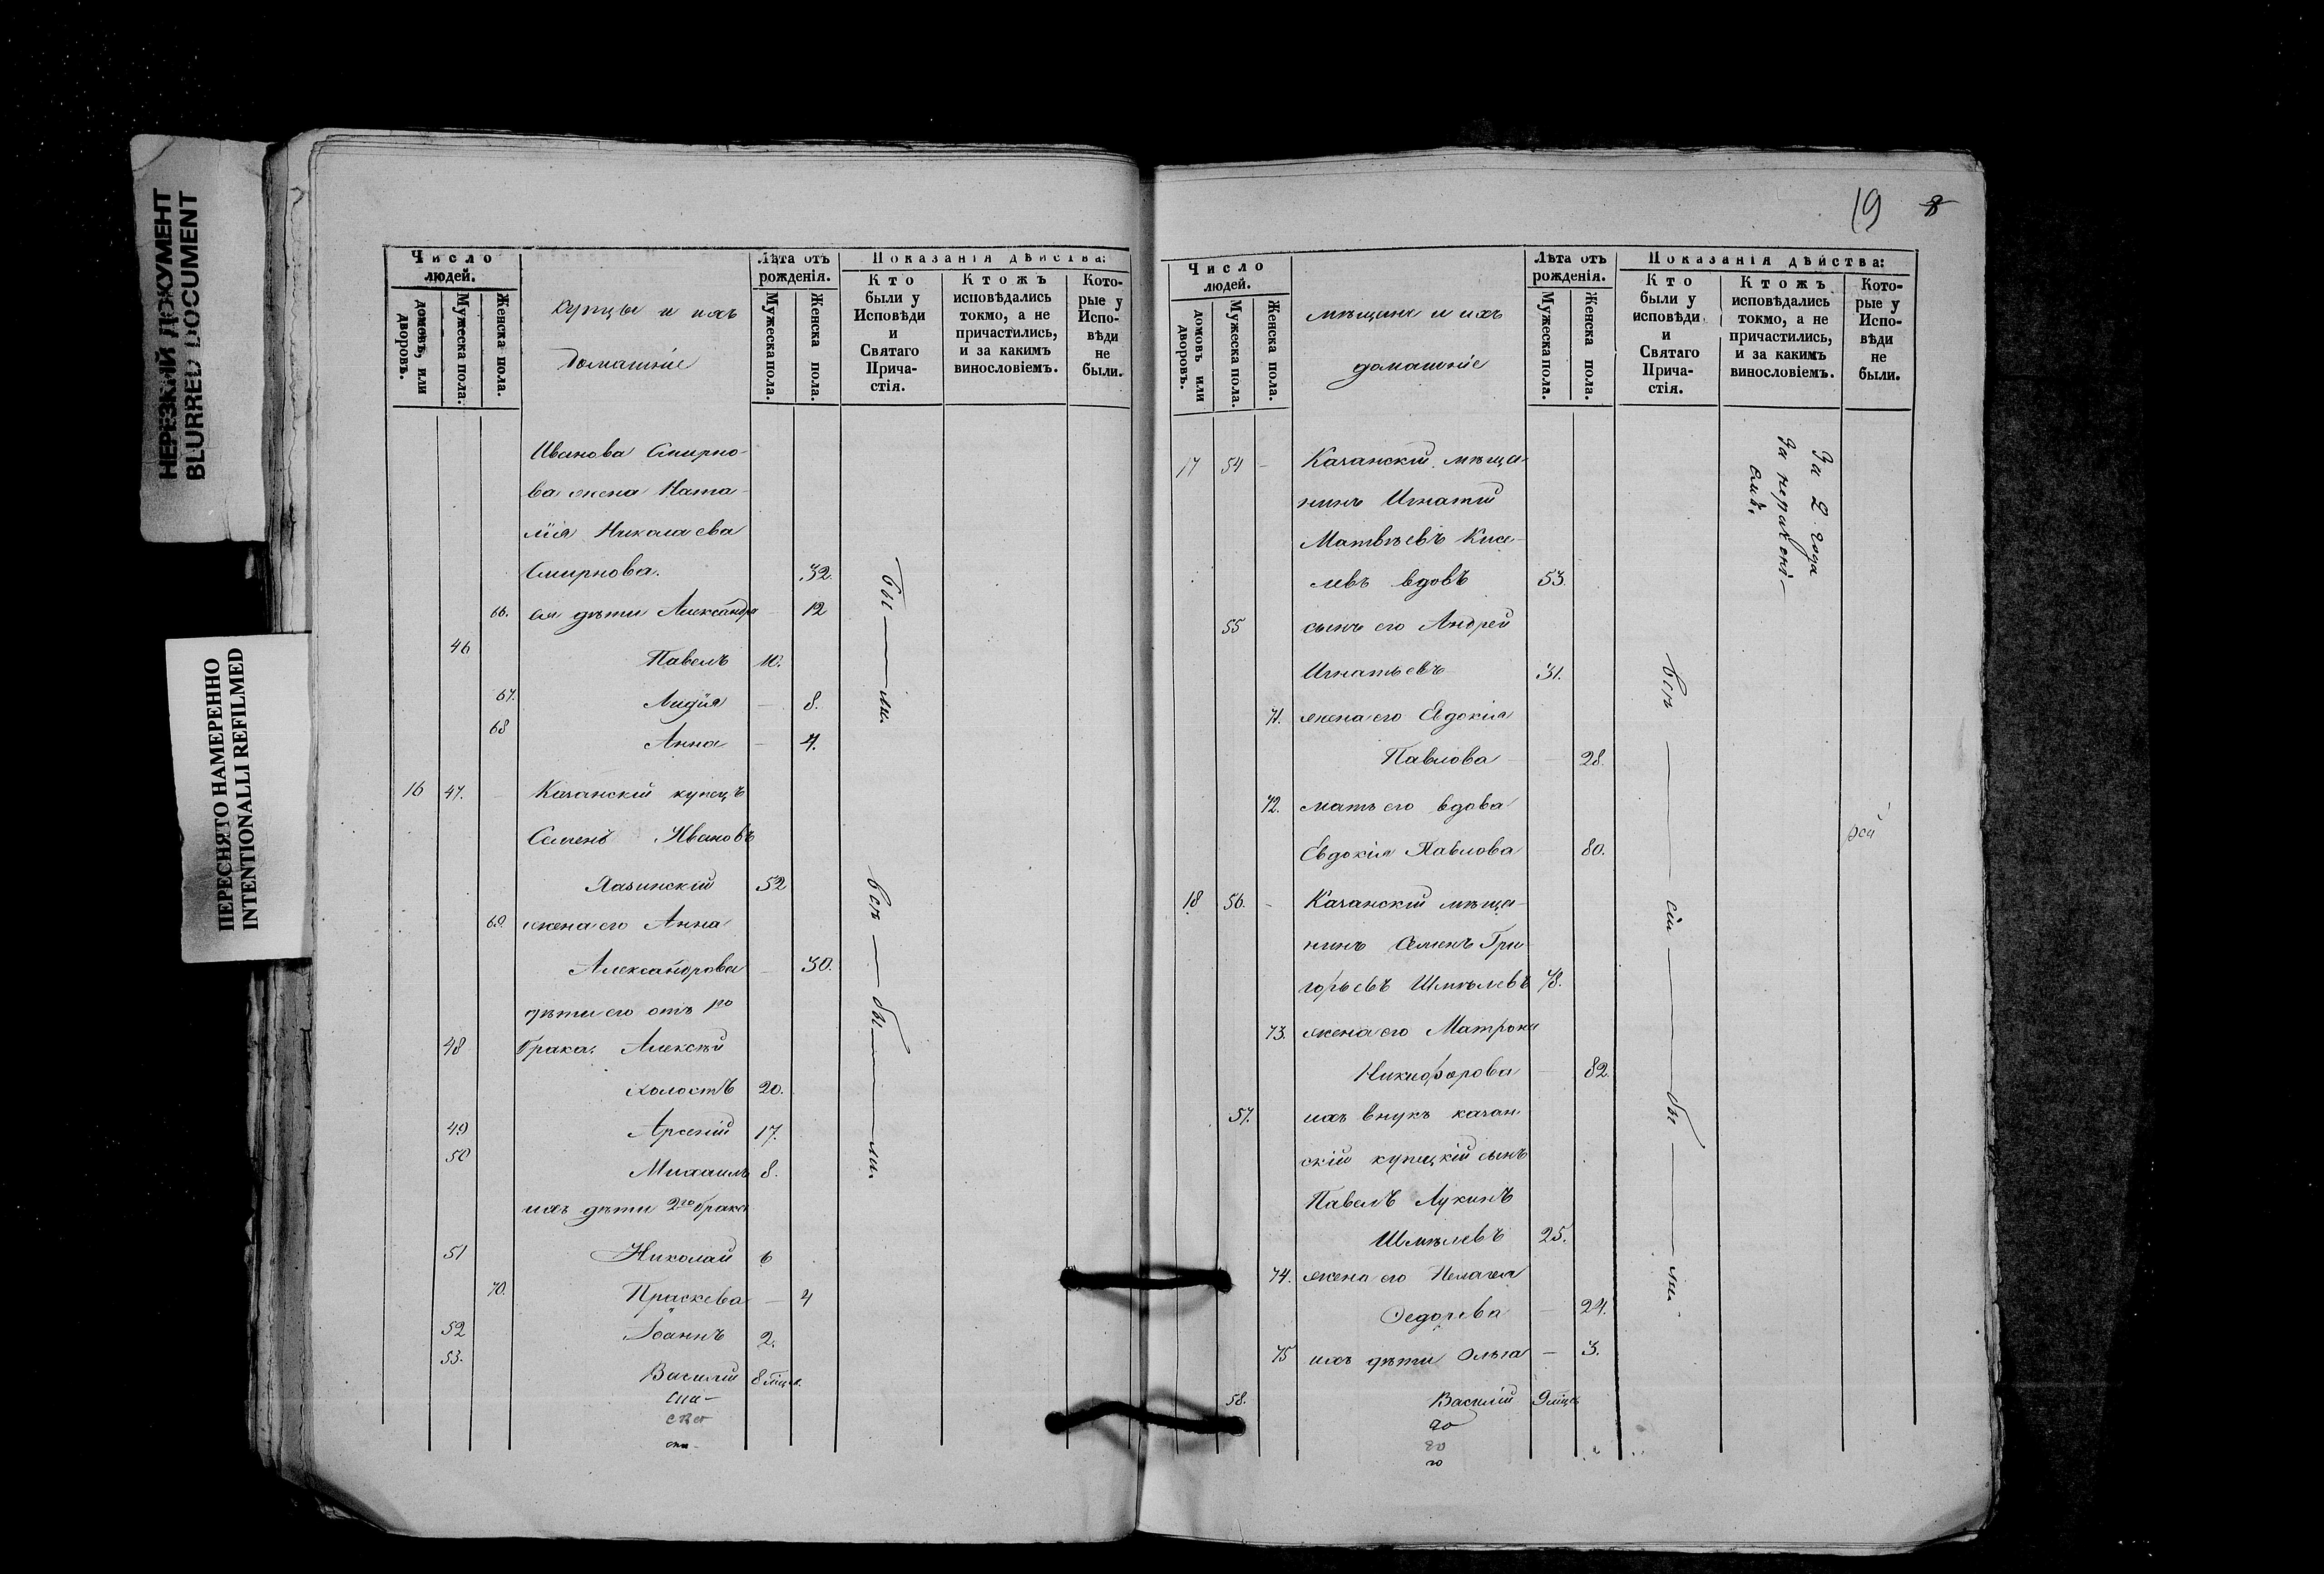 НЕРЕЗКИЙ ДОКУМЕНТ
BLURRED DOCUMENT
ПЕРЕСНЯТО НАМЕРЕННО
INTENTIONALLI REFILMED
Число
людей.
домовъ, или
дворовъ.
Мужеска пола.
Женска пола.
купцы и ихъ
домашніе
Лѣта отъ
рожденія.
Мужеска пола.
Женска пола.
Показанія дѣйства:
Кто
были у
Исповѣди
и
Святаго
Прича-
стія.
Ктожъ
исповѣдались
токмо, а не
причастились,
и за какимъ
винословіемъ.
Кото-
рые у
Испо-
вѣди
не
были.
Иванова Смирно-
ва жена Ната-
лія Николаева
Смирнова. 32.
66. ея дѣти Александра — 12
46 Павелъ 10.
67. Лидія — 8.
68 Анна — 4.
бы — ли.
16 47. — Казанскій купецъ
Семенъ Ивановъ
52
69. жена его Анна
Александрова — 30.
дѣти его отъ 1го
48 брака: Алексѣй
холостъ 20.
49 Арсеній 17.
50 Михаилъ 8.
ихъ дѣти 2го брака
51 Николай 6
70. Праскева — 4
52 Іоаннъ 2.
53. Василій 8 мцев.
всѣ — бы — ли.
спа-
19 8
Число
людей.
домовъ или
дворовъ.
Мужеска пола.
Женска пола.
мѣщане и ихъ
домашніе
Лѣта отъ
рожденія.
Мужеска пола.
Женска пола.
Показанія дѣйства:
Кто
были у
исповѣди
и
Святаго
Прича-
стія.
Ктожъ
исповѣдались
токмо, а не
причастились,
и за какимъ
винословіемъ.
Кото-
рые у
Испо-
вѣди
не
были.
17 54 — Казанскій мѣща-
нинъ Игнатій
Матвѣевъ Кисе-
левъ вдовъ 53.
55 сынъ его Андрей
Игнатьевъ 31.
71. жена его Евдокія
Павлова — 28.
72. мать его вдова
Евдокія Павлова — 80.
За 2 года
За нерадѣні-
емъ.
18 56. — Казанскій мѣща-
нинъ Семенъ Гри-
горьевъ Шмѣлевъ 78.
73. жена его Матрона
Никифорова — 82.
57. ихъ внукъ казан-
скій купецкій сынъ
Павелъ Лукинъ
Шмѣлевъ 25.
74. жена его Пелагея
Федорова — 24.
75 ихъ дѣти Ольга — 3.
58. Василій 9 мцев
всѣ — сіи — бы — ли.
го
го
го